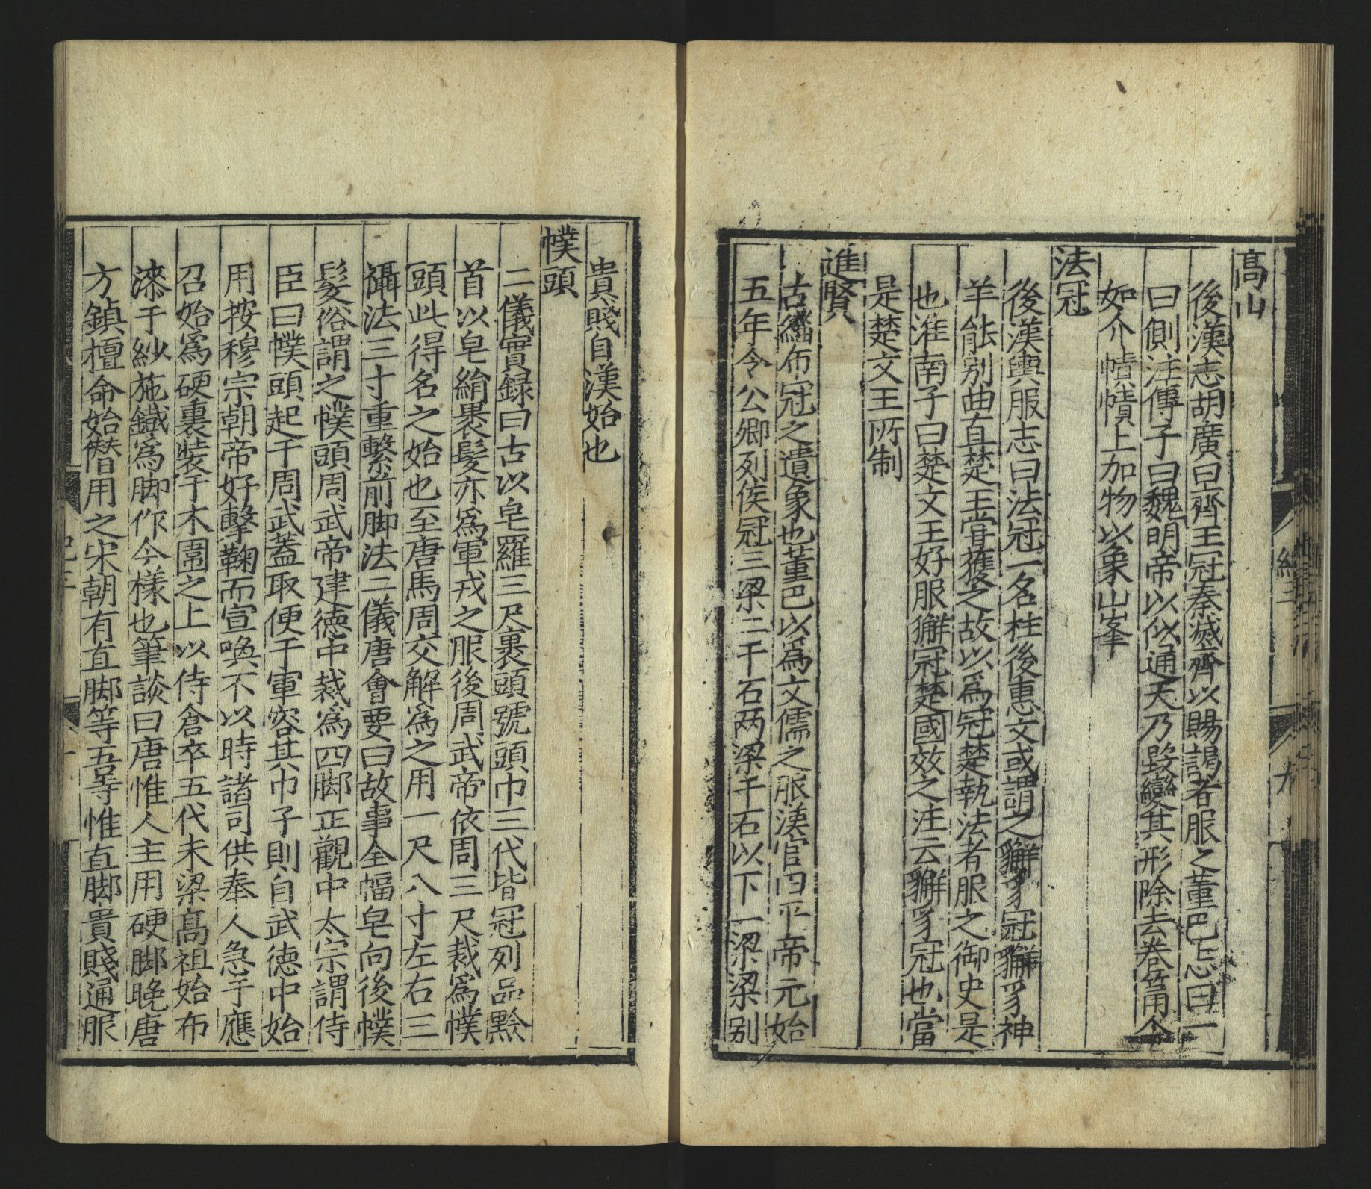 髙山
後漢志胡廣曰齊王冠秦滅齊以賜謁者服之董巴志曰一
曰側注傅子曰魏明帝以似通天乃毀變其形除去卷筩令
如介幘幘上加物以象山峯
法冠
後漢輿服志曰法冠一名柱後惠文或謂之獬豸冠獬豸神
羊能别曲直楚王嘗獲之故以爲冠楚執法者服之御史是
也淮南子曰楚文王好服獬冠楚國效之注云獬豸冠也當
是楚文王所制
進賢
古緇布冠之遺象也董巴以爲文儒之服漢官曰平帝元始
五年令公卿列侯冠三梁二千石两梁千石以下一梁梁别
貴賤自漢始也
幞頭
二儀實録曰古以皂羅三尺裹頭號頭巾三代皆冠列品黔
首以皂絹裹髮亦爲軍戎之服後周武帝依周三尺裁爲幞
頭此得名之始也至唐馬周交解爲之用一尺八寸左右三
襵法三寸重繫前脚法二儀唐會要曰故事全幅皂向後幞
髮俗謂之幞頭周武帝建德中裁爲四脚正觀中太宗謂侍
臣曰幞頭起于周武蓋取便于軍容其巾子則自武德中始
用按穆宗朝帝好擊鞠而宣喚不以時諸司供奉人急于應
召始爲硬裏裝于木圍之上以侍倉卒五代末梁髙祖始布
漆于紗施鐵爲脚作今様也筆談曰唐惟人主用硬脚晚唐
方鎮擅命始僭用之宋朝有直脚等五等惟直脚貴賤通服